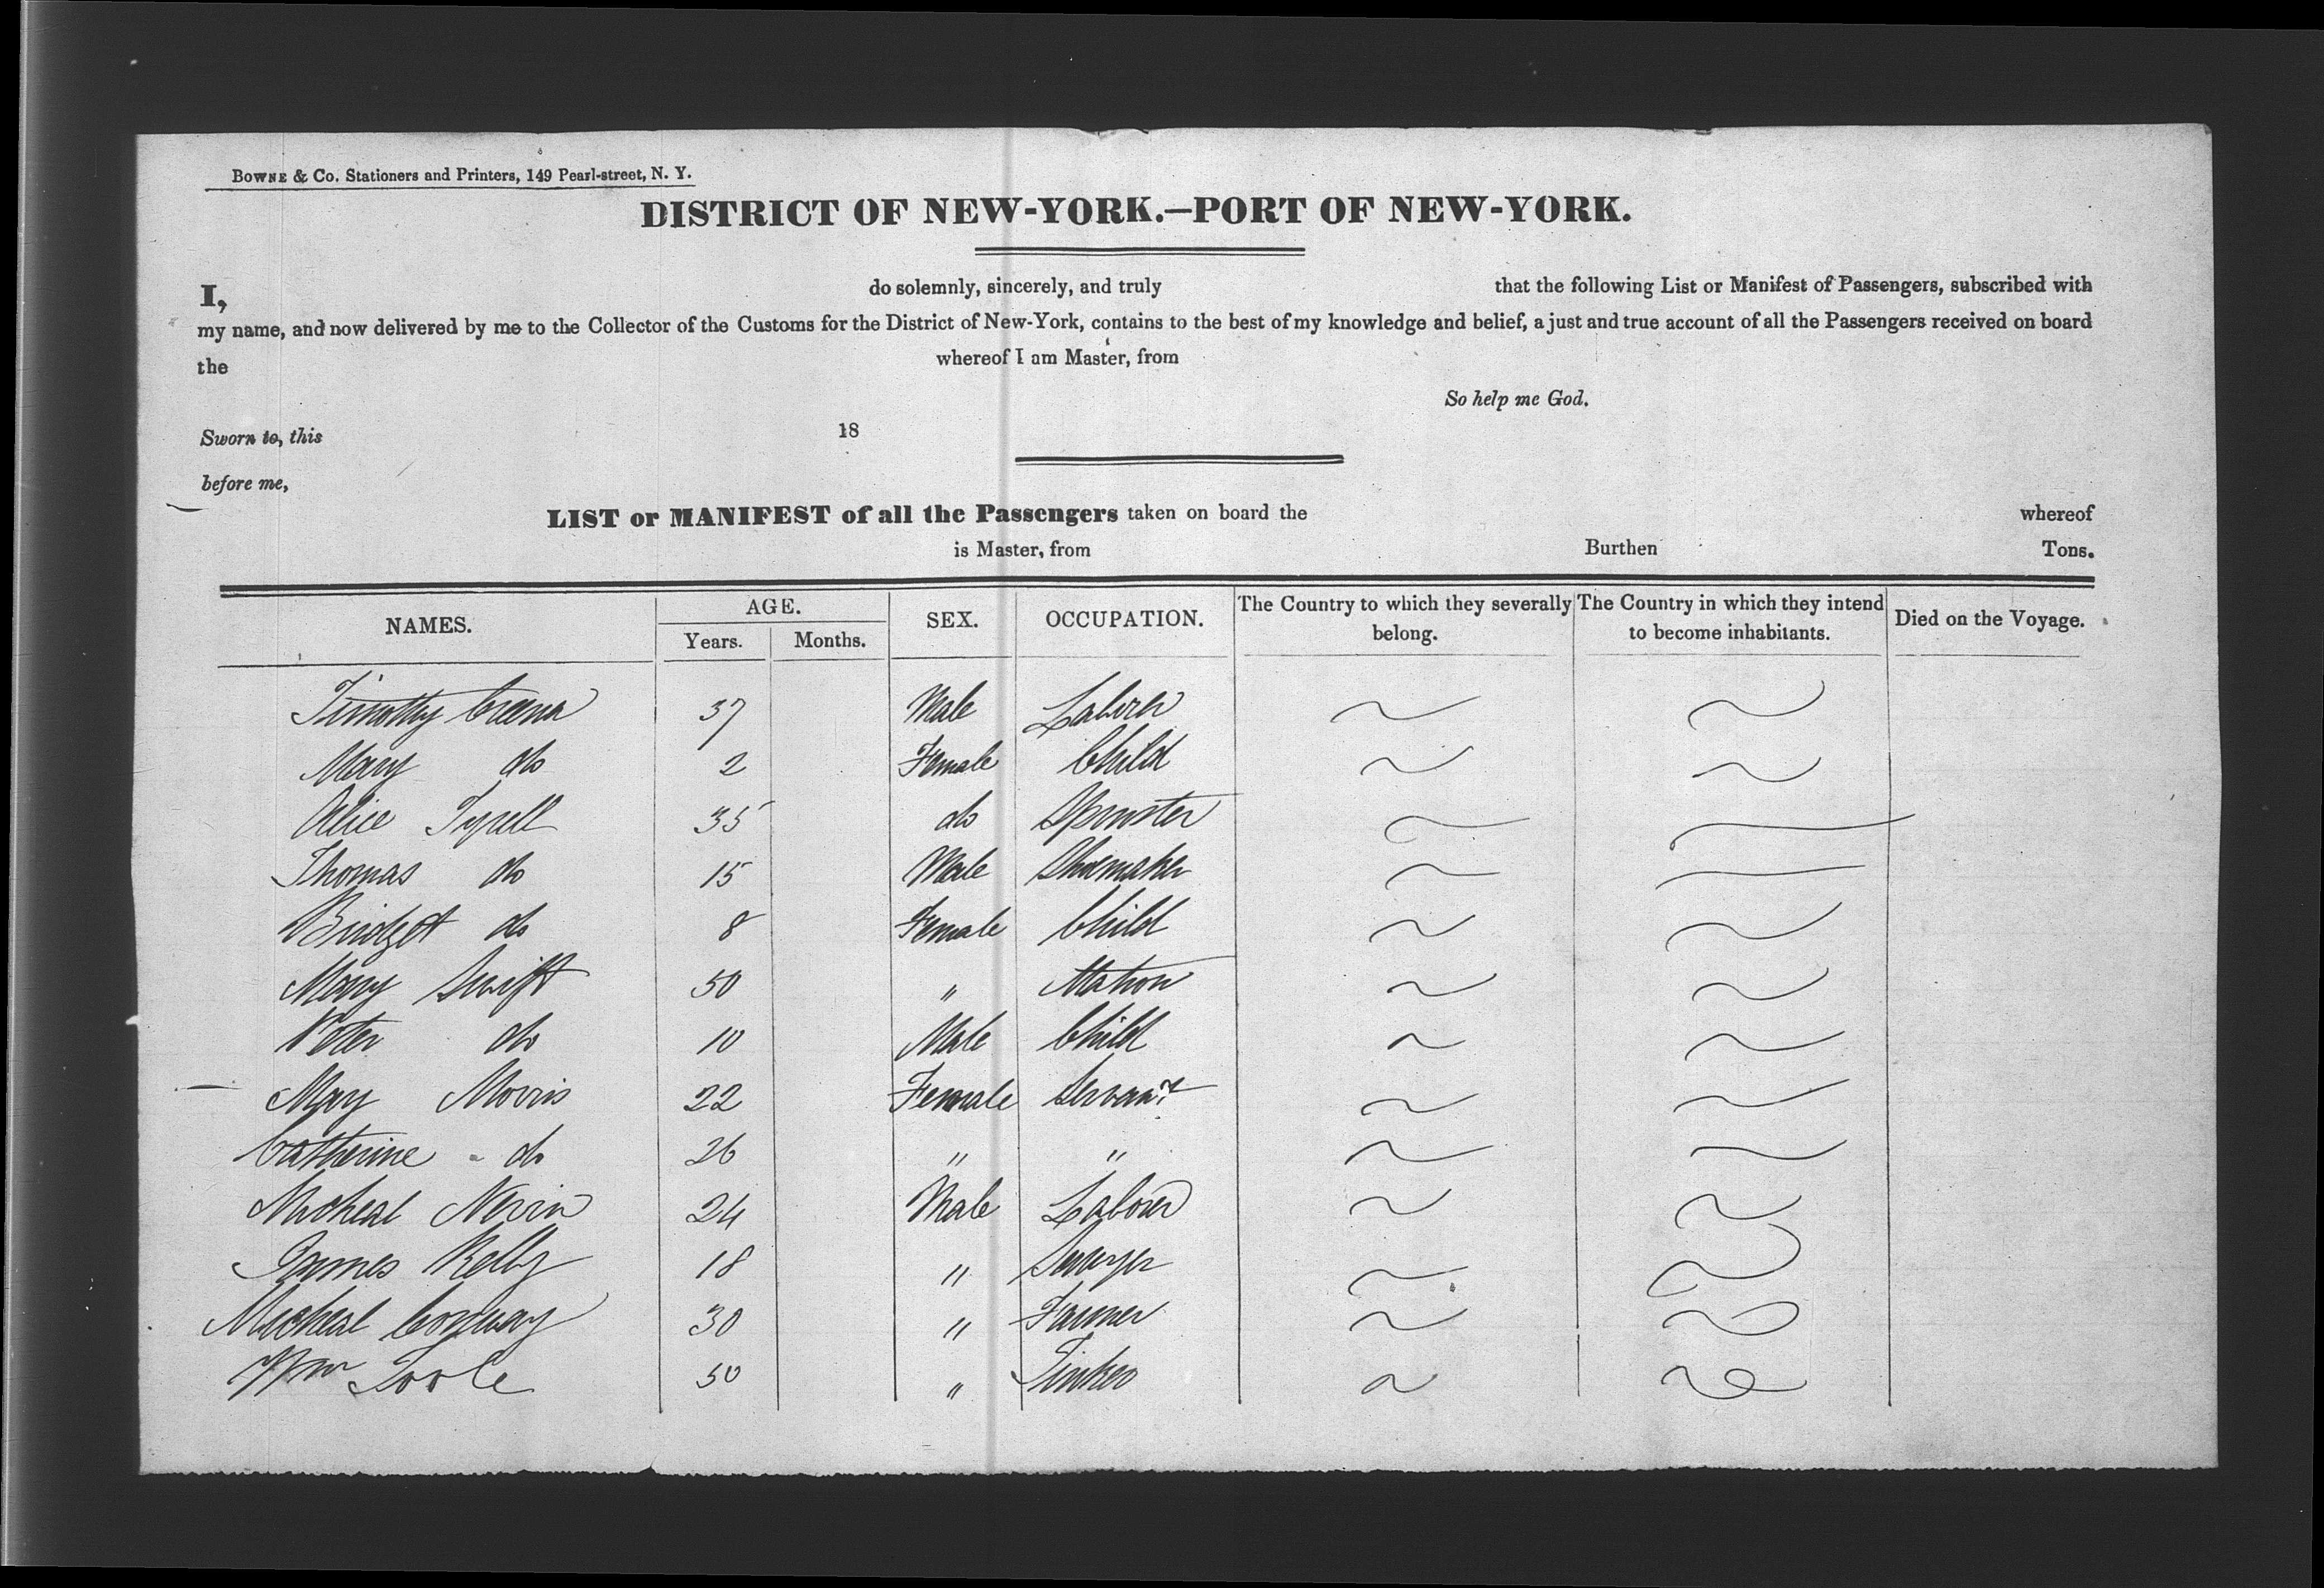 BOWNE & Co. Stationers and Printers, 149 Pearl-street, N. Y.
DISTRICT OF NEW-YORK.—PORT OF NEW-YORK.
I, do solemnly, sincerely, and truly that the following List or Manifest of Passengers, subscribed with
my name, and now delivered by me to the Collector of the Customs for the District of New-York, contains to the best of my knowledge and belief, a just and true account of all the Passengers received on board
the whereof I am Master, from
So help me God.
Sworn to, this 18
before me,
LIST or MANIFEST of all the Passengers taken on board the whereof
is Master, from Burthen Tons.
NAMES. AGE. SEX. OCCUPATION. The Country to which they severally belong. The Country in which they intend to become inhabitants. Died on the Voyage.
Years. Months.
Timothy 37 Male Laborer
Mary do 2 Female Child
Alice Tyrell 35 do Spinster
Thomas do 15 Male Shoemaker
Bridget do 8 Female Child
Mary Swift 50 " Matron
Peter do 10 Male Child
Mary Morris 22 Female Servant
Catherine do 26 " "
Micheal Nevin 24 Male Laborer
James Kelly 18 " Sawyer
Micheal Conway 30 " Farmer
Wm Toole 50 " Tinker